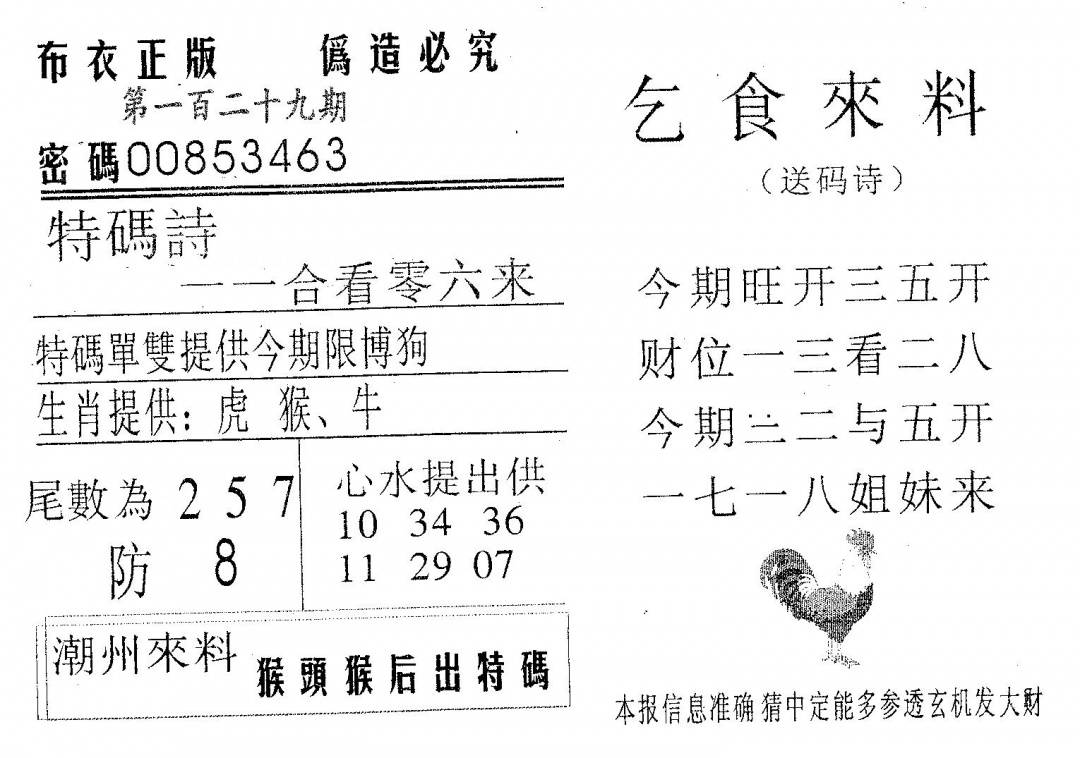 布衣正版 僞造必究
第一百二十九期
密碼00853463
特碼詩
一一合看零六来
特碼單雙提供今期限博狗
生肖提供：虎 猴、牛
尾數為 2 5 7
防 8
心水提出供
10 34 36
11 29 07
潮州來料 猴頭猴后出特碼
乞食來料
（送码诗）
今期旺开三五开
财位一三看二八
今期三二与五开
一七一八姐妹来
本报信息准确猜中定能多参透玄机发大财